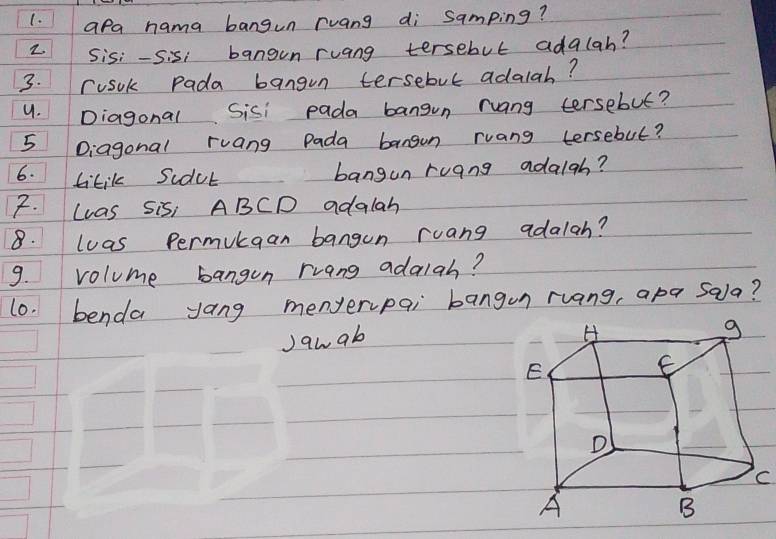 1. apa nama bangun ruang di samping?
2. Sisi - Sisi bangun ruang tersebut adalah?
3. rusuk Pada bangun tersebut adalah?
4. Diagonal Sisi pada bangun ruang tersebut?
5 Diagonal ruang Pada bangun ruang tersebut?
6. titik Sudut bangun ruang adalah?
7. Luas sisi ABCD adalah
8. luas Permukaan bangun ruang adalah?
9. volume bangun ruang adalah?
10. benda yang menyerupai bangun ruang, apa saja?
Jawab
H g
E F
D
C
A B